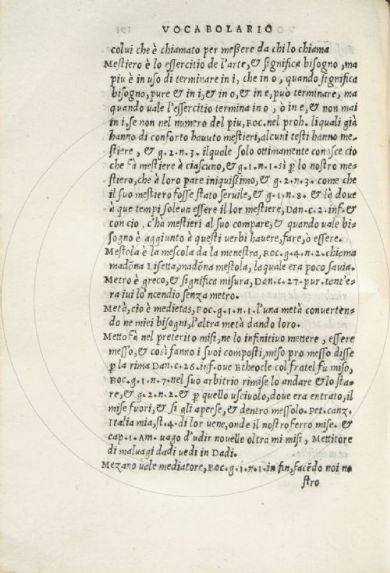 VOCABOLARIO
colui che è chiamato per meßere da chi lo chiama
Mestiero è lo essercitio de l'arte, & significa bisogno, ma
piu è in uso di terminare in i, che in o, quando significa
bisogno, pure & in i, & in o, & in e, può terminare, ma
quando vale l'essercitio termina in o, ò in e, & non mai
in i, se non nel numero del piu, BOC. nel proh. liquali già
hanno di conforto hauuto mestieri, alcuni testi hanno me-
stiere, & g.2.n.3. ilquale solo ottimamente conosce cio
che fà mestiere à ciascuno, & g.1.n.1. sì p lo nostro me-
stiero, che à loro pare iniquissimo, & g.2.n.3. come che
il suo mestiero fosse stato seruile, & g.1.n.8. & là doue
à que tempi soleua essere il lor mestiere, DAN.C.2.inf. &
con cio, c'ha mestieri al suo compare, & quando vale bi-
sogno è aggiunto à questi verbi hauere, fare, ò essere.
Mestola è la mescola da la menestra, BOC.g.4.n.2. chiama
madõna Lisetta, madõna mestola, laquale era poco sauia.
Metro è greco, & significa misura, DAN.C.27.pur. tant'e-
ra iui lo'ncendio senza metro.
Metà, cio è medietas, BOC.g.1.n.1. l'una metà conuerten-
do ne miei bisogni, l'altra metà dando loro.
Metto fà nel preterito misi, ne lo infinitivo mettere, essere
messo, & così fanno i suoi compositi, miso pro messo disse
p la rima DAN.C.26.inf. oue Etheocle col fratel fù miso,
BOC.g.1.n.7. nel suo arbitrio rimise lo andare & lo sta-
re, & g.2.n.2. & p quello usciuolo, doue era entrato, il
mise fuori, & si gli aperse, & dentro messolo. Pet.canz.
Italia mia, st.4. di lor vene, onde il nostro ferro mise. &
cap.1.Am. uago d'udir nouelle oltra mi misi, Mettitore
di maluagi dadi vedi in Dadi.
Mezano vale mediatore, BOC.g.1.n.1. in fin, facẽdo noi no
stro